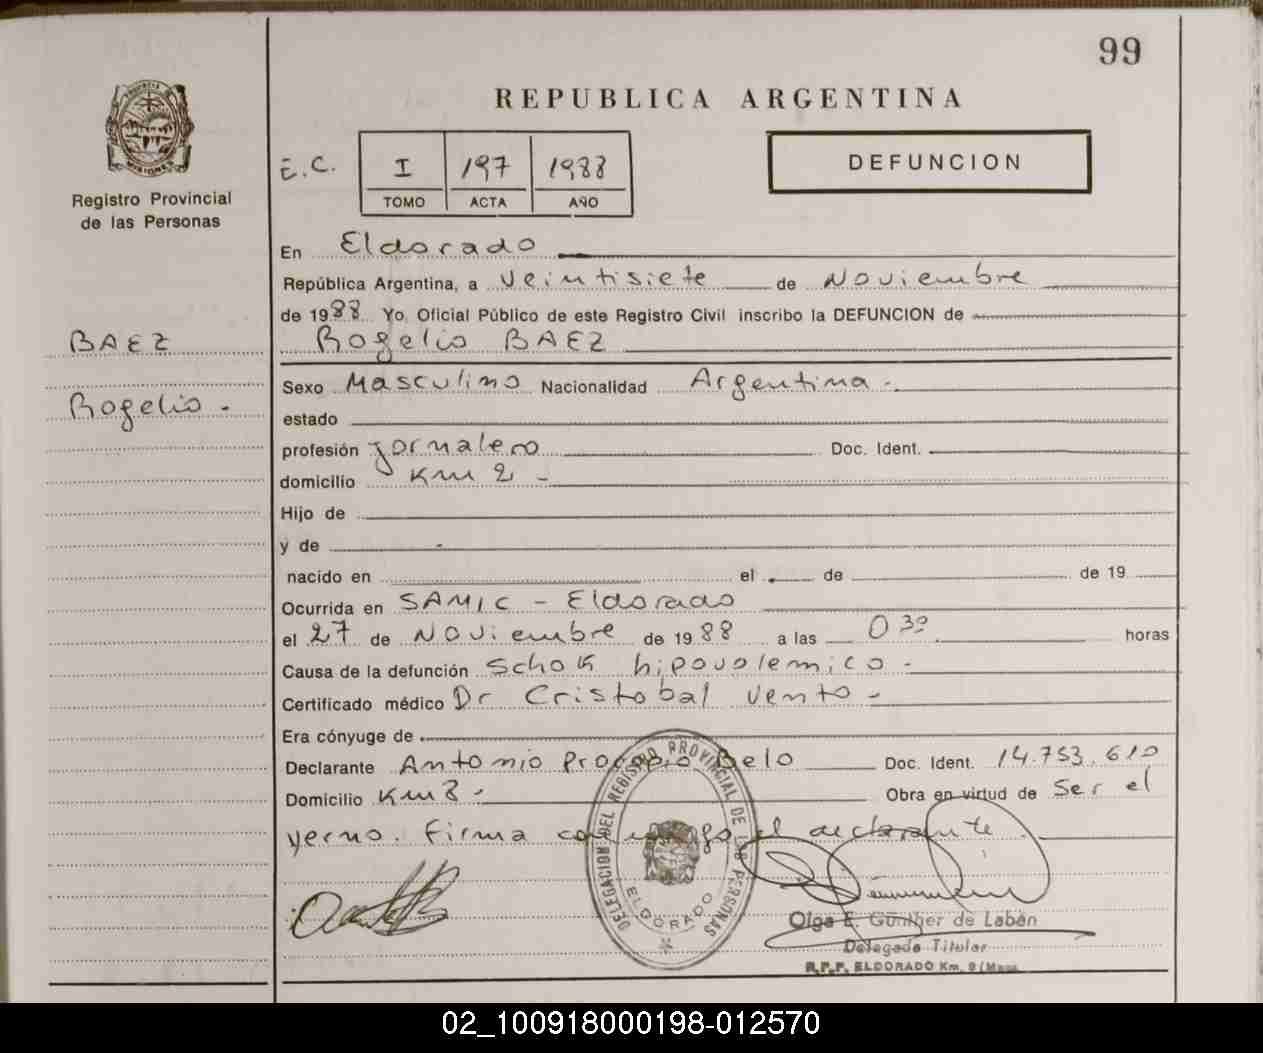 99
REPUBLICA ARGENTINA
PROVINCIA DE MISIONES
Registro Provincial
de las Personas
E.C. I 197 1988
TOMO ACTA AÑO
DEFUNCION
En Eldorado
República Argentina, a veintisiete de Noviembre
de 1988 Yo, Oficial Público de este Registro Civil inscribo la DEFUNCION de
BAEZ
Rogelio BAEZ
Sexo Masculino Nacionalidad Argentina -
Rogelio -
estado
profesión jornalero Doc. Ident.
domicilio Km 2 -
Hijo de
y de
nacido en el de de 19
Ocurrida en SAMIC - Eldorado
el 27 de Noviembre de 1988 a las 0 30 horas
Causa de la defunción Schok hipovolemico -
Certificado médico Dr Cristobal Vento -
Era cónyuge de
Declarante Antonio Procopio Belo Doc. Ident. 14.753.610
Domicilio Km 8 - Obra en virtud de Ser el
yerno. Firma conmigo el declarante
DELEGACION DEL REGISTRO PROVINCIAL DE LAS PERSONAS
ELDORADO
Olga E. Günther de Labán
Delegada Titular
R.P.P. ELDORADO Km. 9 (Mnes
02_100918000198-012570